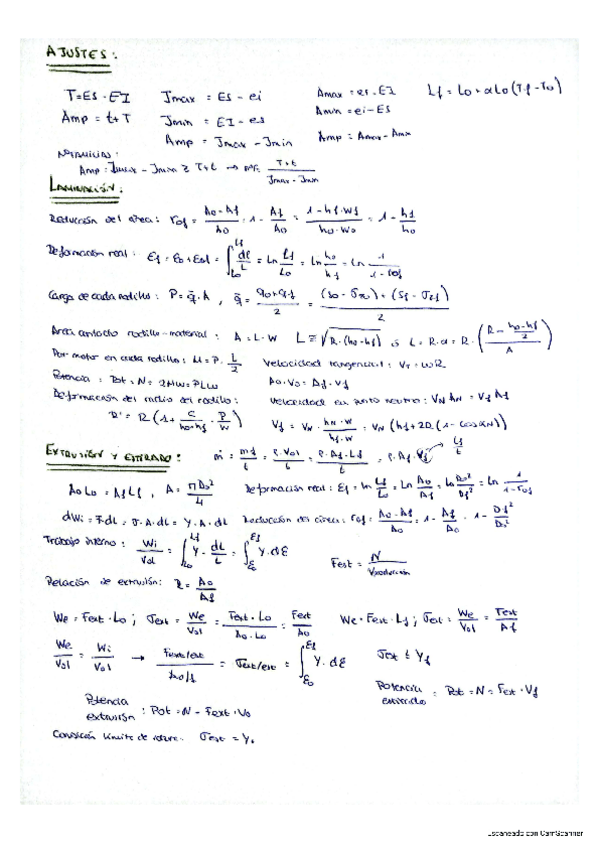 AJUSTES:
T=ES-EI Jmax = ES - ei Amax = es-EI Lf = Lo + αLo (Tf - To)
Amp = t+T Jmin = EI - es Amin = ei-ES
Amp = Jmax - Jmin Amp = Amax - Amin
Amp = Jmax - Jmin ≥ T+t → nºF: T+t / Jmax - Jmin
LAMINACIÓN:
Reducción del área: rof = Ao - Af / Ao = 1 - Af / Ao = 1 - hf·Wf / ho·Wo = 1 - hf / ho
Deformación real: Ef = = ∫ Lo Lf dl / L = Ln Lf / Lo = Ln ho / hf = Ln 1 / 1 - rof
Carga de cada rodillo: P = q̄·A, q̄ = qo + qf / 2 = (So - σxo) + (Sf - σxf) / 2
Area contacto rodillo-material: A = L·W L = √R·(ho-hf) ó L = R·α = R·
Par motor en cada rodillo: M = P· L / 2 Velocidad tangencial: VT = ωR
Potencia: Pot = N = 2Mω = PLω Ao·Vo = Af·Vf
Deformación del radio del rodillo: Velocidad en punto neutro: VN hN = Vf hf
R' = R (1 + C / ho-hf · P / W) Vf = VN · hN·W / hf·W = VN (hf + 2R (1 - cos αN))
EXTRUSIÓN Y ESTIRADO: ṁ = mf / t = ρ·Vol / t = ρ·Af·Lf / t = ρ·Af·Vf Lf / t
Ao Lo = Af Lf, A = πDo² / 4 Deformación real: Ef = Ln Lf / Lo = Ln Ao / Af = Ln Do² / Df² = Ln 1 / 1-rof
dWi = F·dL = σ·A·dL = Y·A·dL Reducción del área: rof = Ao - Af / Ao = 1 - Af / Ao = 1 - Df² / Do²
Trabajo interno: Wi / Vol = ∫ Lo Lf Y· dL / L = ∫ Eo Ef Y·dE Fest = N / Vproducción
Relación de extrusión: R = Ao / Af
We = Fext·Lo; σext = We / Vol = Fext·Lo / Ao·Lo = Fext / Ao We = Fest·Lf; σest = We / Vol = Fest / Af
We / Vol = Wi / Vol → Fext/est / Ao/f = σext/est = ∫ Eo Ef Y·dE σest ≤ Yf
Potencia extrusión: Pot = N = Fext·Vo Potencia estirado: Pot = N = Fest·Vf
Condición límite de rotura: σest = Y
Escaneado con CamScanner